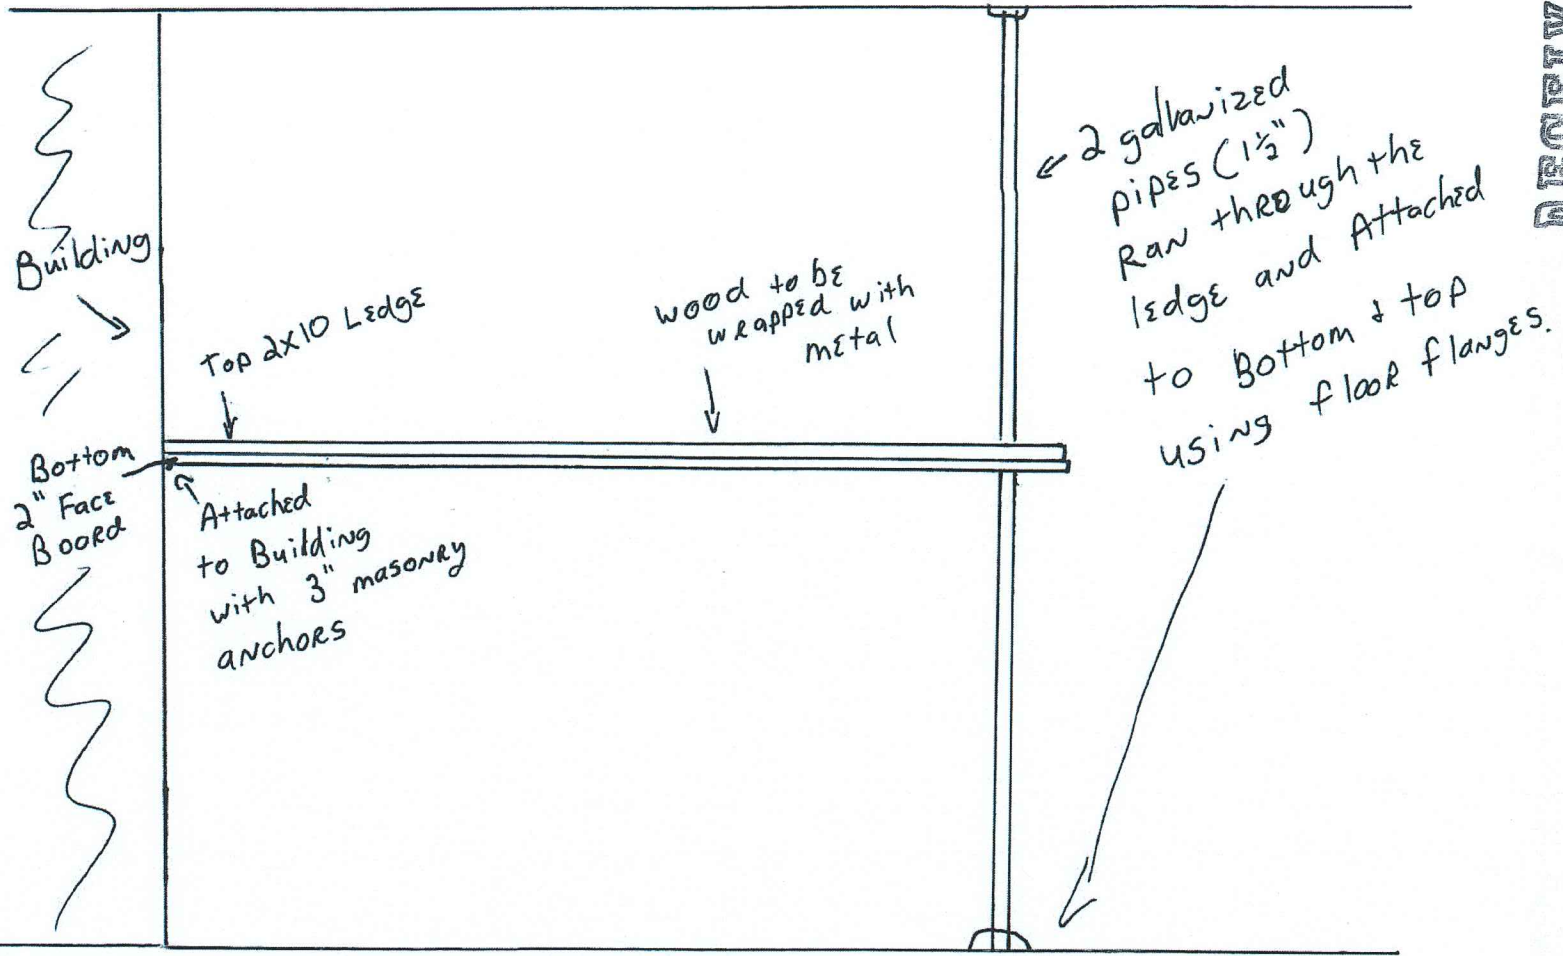 Building
Top 2x10 Ledge
wood to be
wrapped with
metal
2 galvanized
pipes (1½")
Ran through the
ledge and Attached
to Bottom & top
using floor flanges.
Bottom
2" Face
Boord
Attached
to Building
with 3" masonry
anchors